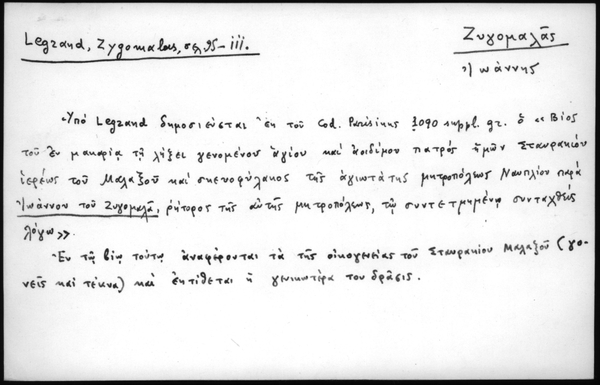 Legrand, Zygomalas, σελ. 95-iii.
Ζυγομαλᾶς
Ἰωάννης
Ὑπό Legrand δημοσιεύεται ἐκ τοῦ Cod. Parisinus 1090 suppl. gr. ὁ «Βίος
τοῦ ἐν μακαρίᾳ τῇ λήξει γενομένου ἁγίου καί ἀοιδίμου πατρός ἡμῶν Σταυρακίου
ἱερέως τοῦ Μαλαξοῦ καί σκευοφύλακος τῆς ἁγιωτάτης μητροπόλεως Ναυπλίου παρά
Ἰωάννου τοῦ Ζυγομαλᾶ, ῥήτορος τῆς αὐτῆς μητροπόλεως, τῷ συντετμημένῳ συνταχθείς
λόγῳ».
Ἐν τῷ βίῳ τούτῳ ἀναφέρονται τά τῆς οἰκογενείας τοῦ Σταυρακίου Μαλαξοῦ (γο-
νεῖς καί τέκνα) καί ἐκτίθεται ἡ γενικωτέρα του δρᾶσις.